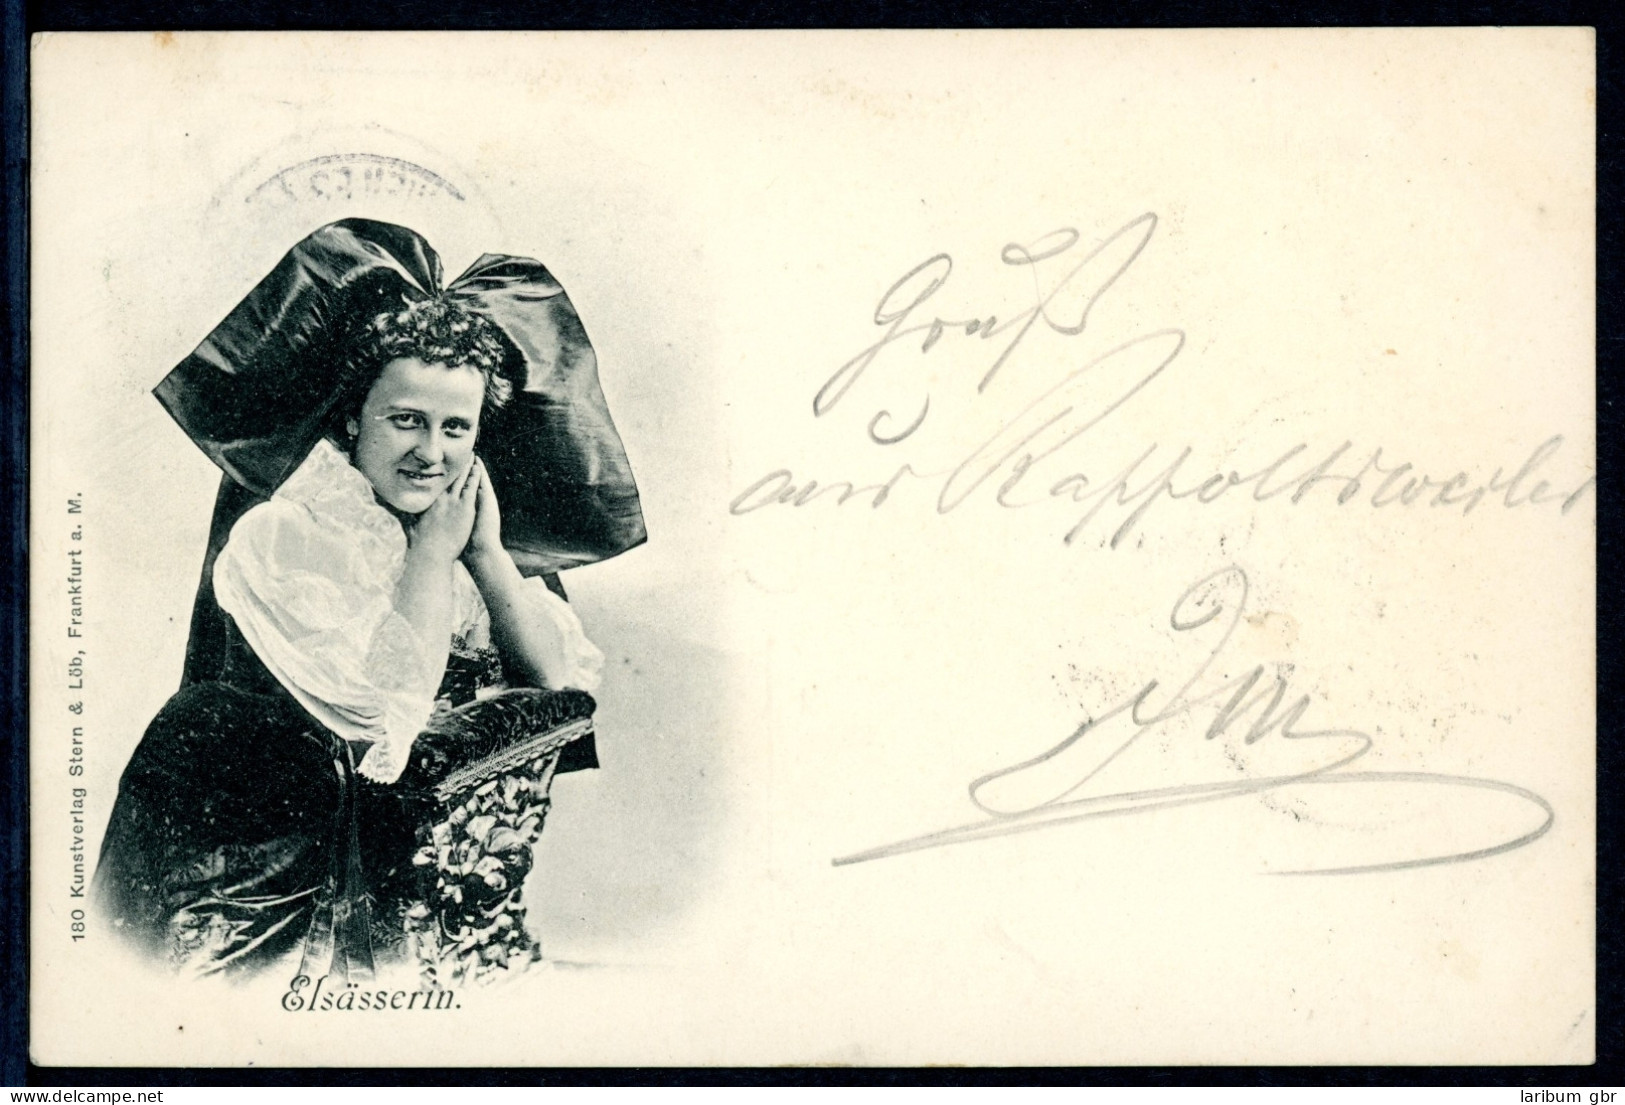 180 Kunstverlag Stern & Löb, Frankfurt a. M.
Elsässerin.
Gruß
aus Rappoltsweiler
delcampe.net
laribum gbr